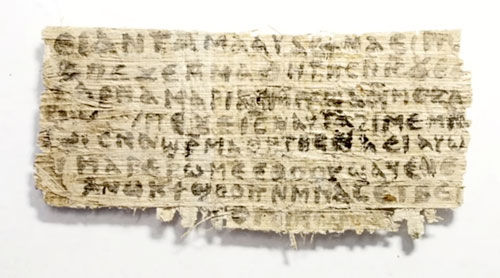 ⲁⲉⲓ ⲁⲛ ⲧⲁⲙⲁⲁⲩ ⲁⲥϯ ⲛⲁⲉⲓ ⲡ
ⲡⲉϫⲉ ⲙⲙⲁⲑⲏⲧⲏⲥ ⲛⲓⲥ ϫⲉ
ⲁⲣⲛⲁ ⲙⲁⲣⲓⲁⲙ ⲙⲡϣⲁ ⲙⲙⲟⲥ ⲁ
ⲡⲉϫⲉ ⲓⲥ ⲛⲁⲩ ⲧⲁϩⲓⲙⲉ ⲙⲛ
ⲥⲛⲁϣⲣⲙⲁⲑⲏⲧⲏⲥ ⲛⲁⲉⲓ ⲁⲩⲱ
ⲙⲁⲣⲉⲣⲱⲙⲉ ⲉⲑⲟⲟⲩ ϣⲁϥⲉ ⲛⲉ
ⲁⲛⲟⲕ ϯϣⲟⲟⲡ ⲛⲙⲙⲁⲥ ⲉⲧⲃⲉ